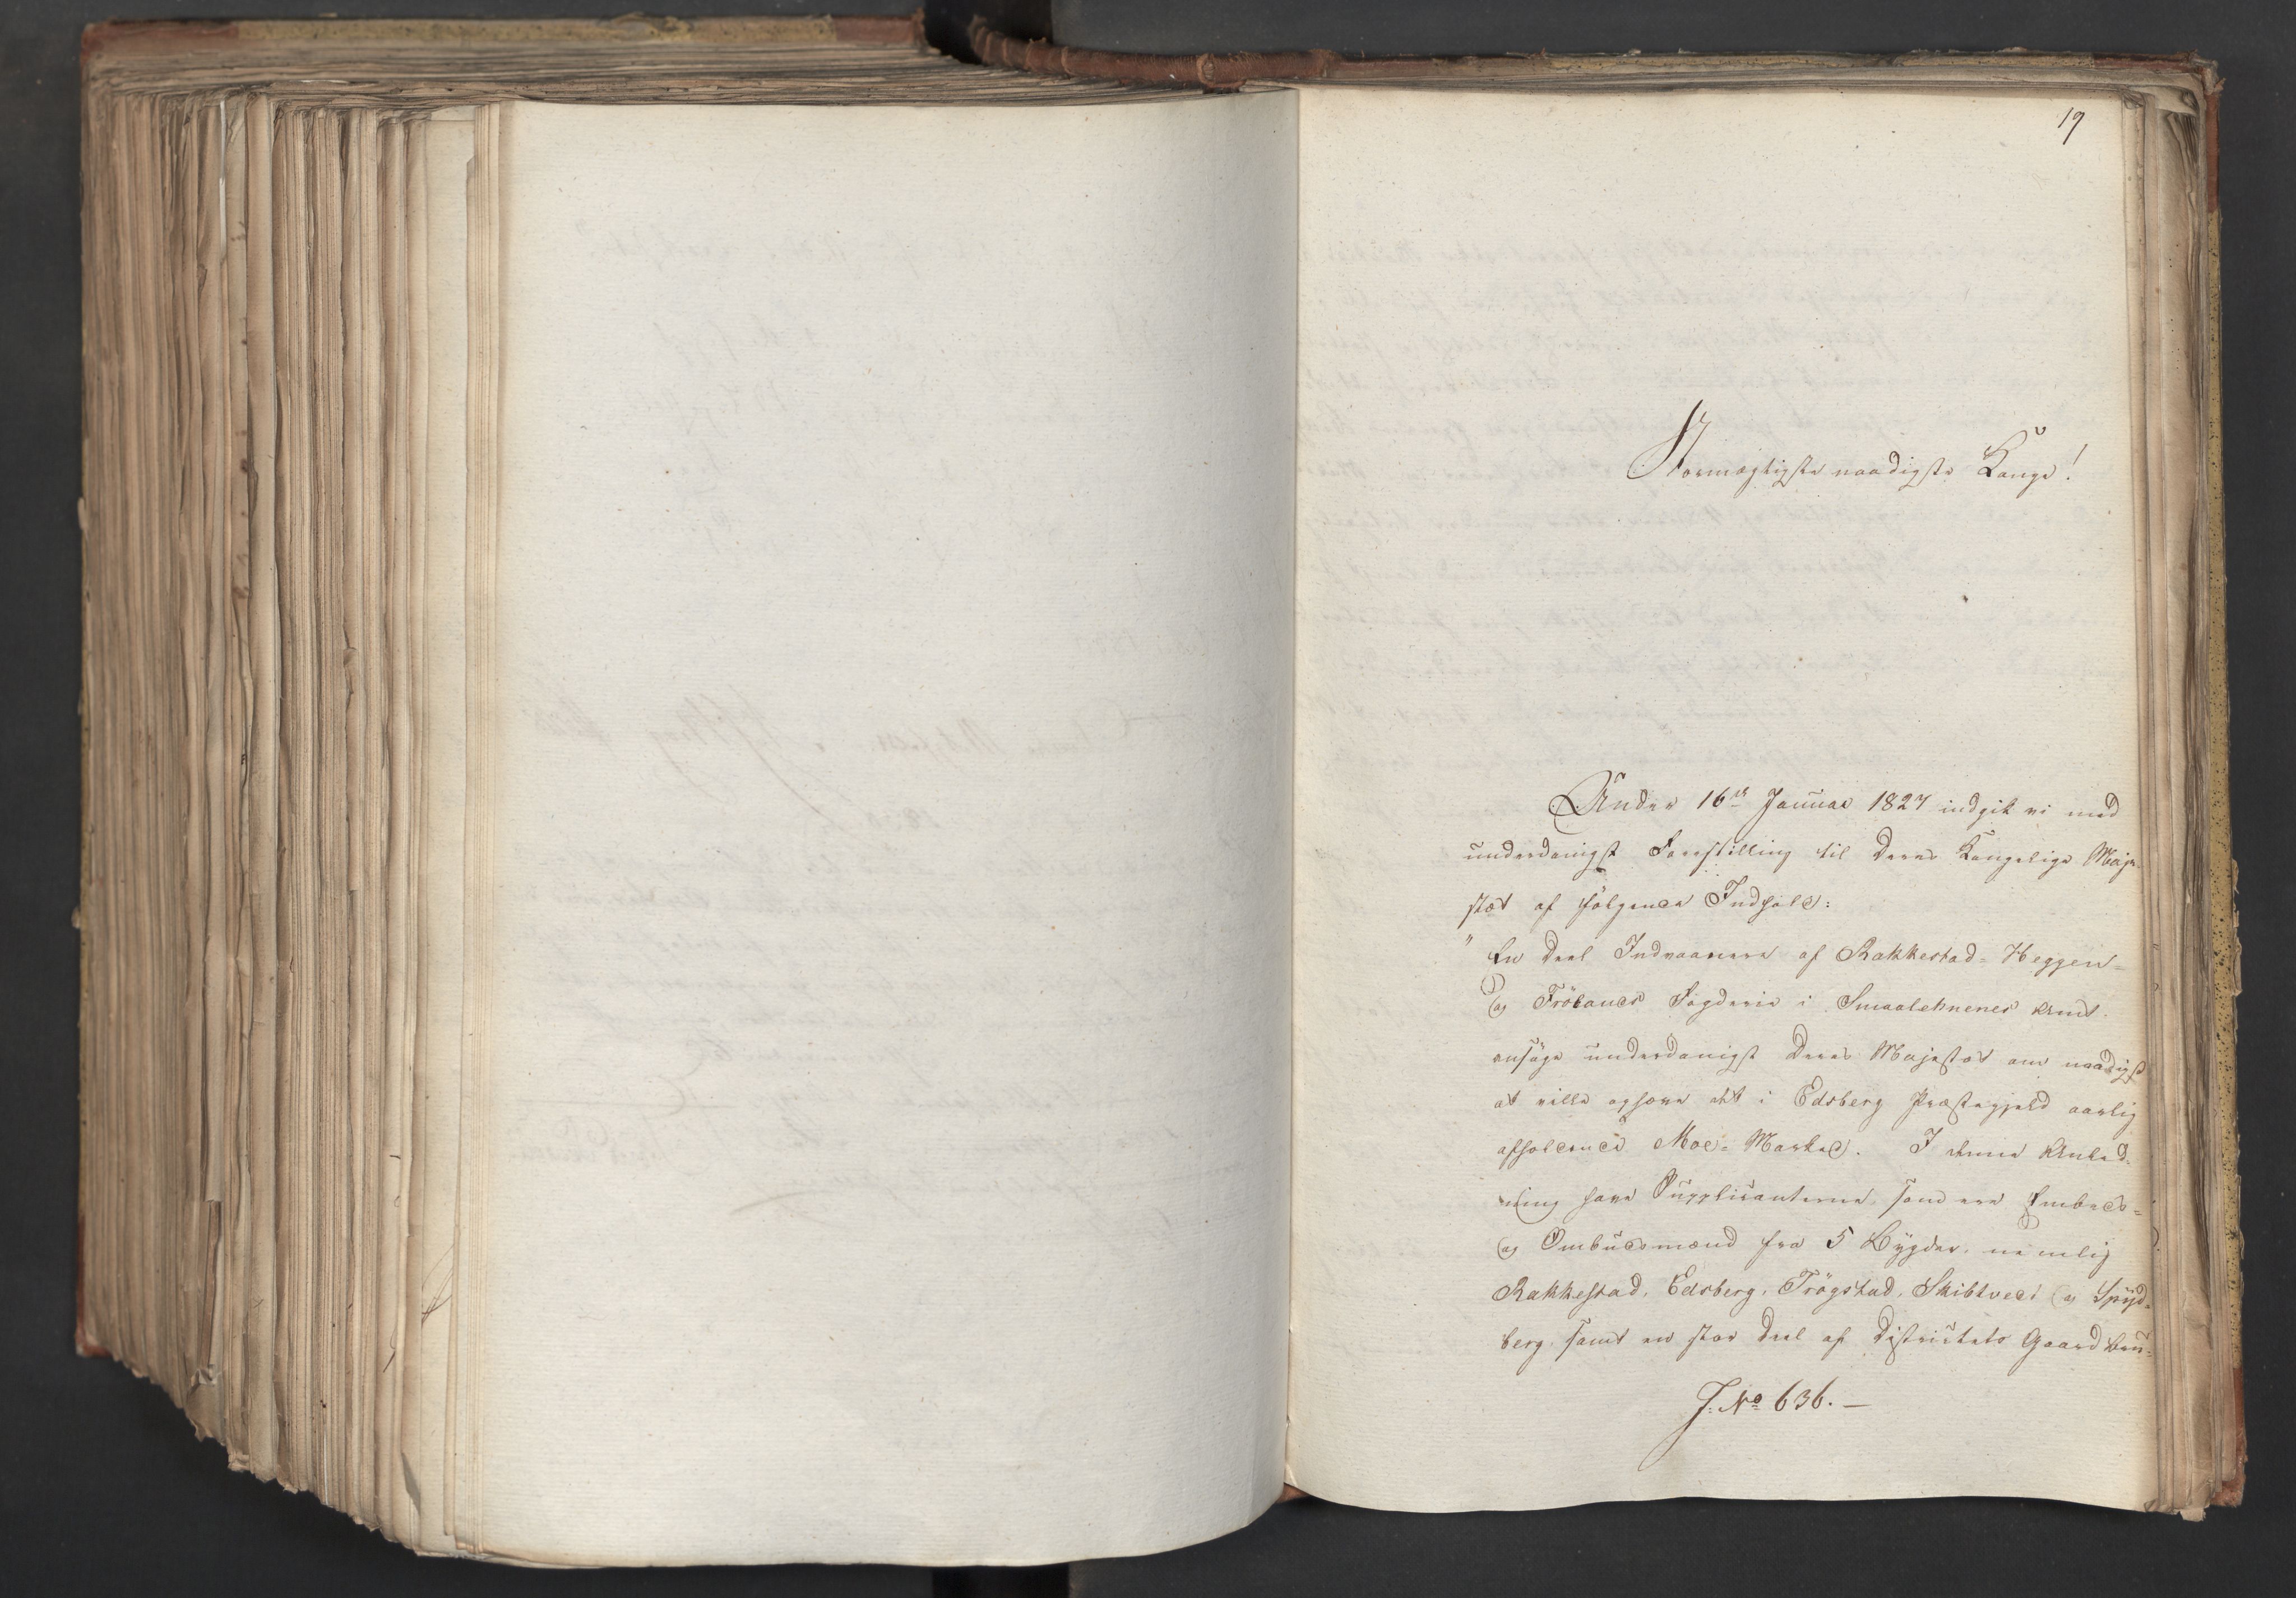 19
Stormægtigste naadigste Konge!
Under 16de Januar 1827 indgik vi med
underdanigst Forestilling til Deres Kongelige Maje-
stæt af følgende Indhold:
" En Deel Indvaanere af Rakkestad- Heggen-
og Frölands Fogderie i Smaalehnenes Amt.
ansøge underdanigst Deres Majestæt om naadigst
at ville ophæve det i Edsberg Præstegjeld aarlig
afholdende Moe-Marked. I denne Anled-
ning have Supplicanterne, som ere Embeds-
og Ombudsmænd fra 5 Bygder, nemlig
Rakkestad, Edsberg, Trögstad, Skibtved og Spyd-
berg, samt en stor Deel af Districtets Gaardbru-
J. No 636. —